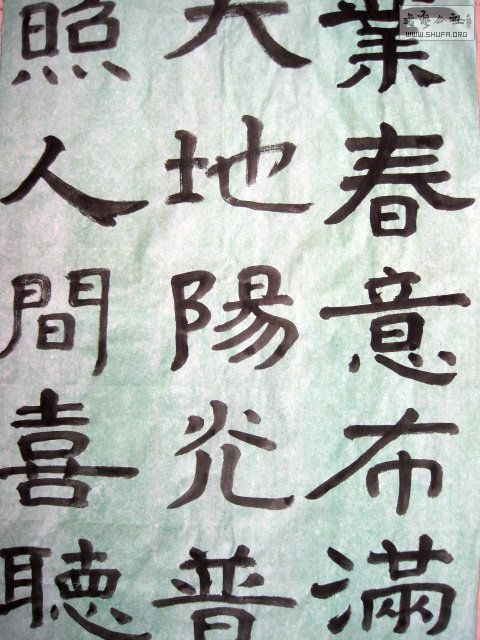 業春意布滿
大地陽光普
照人間喜聽
WWW.SHUFA.ORG